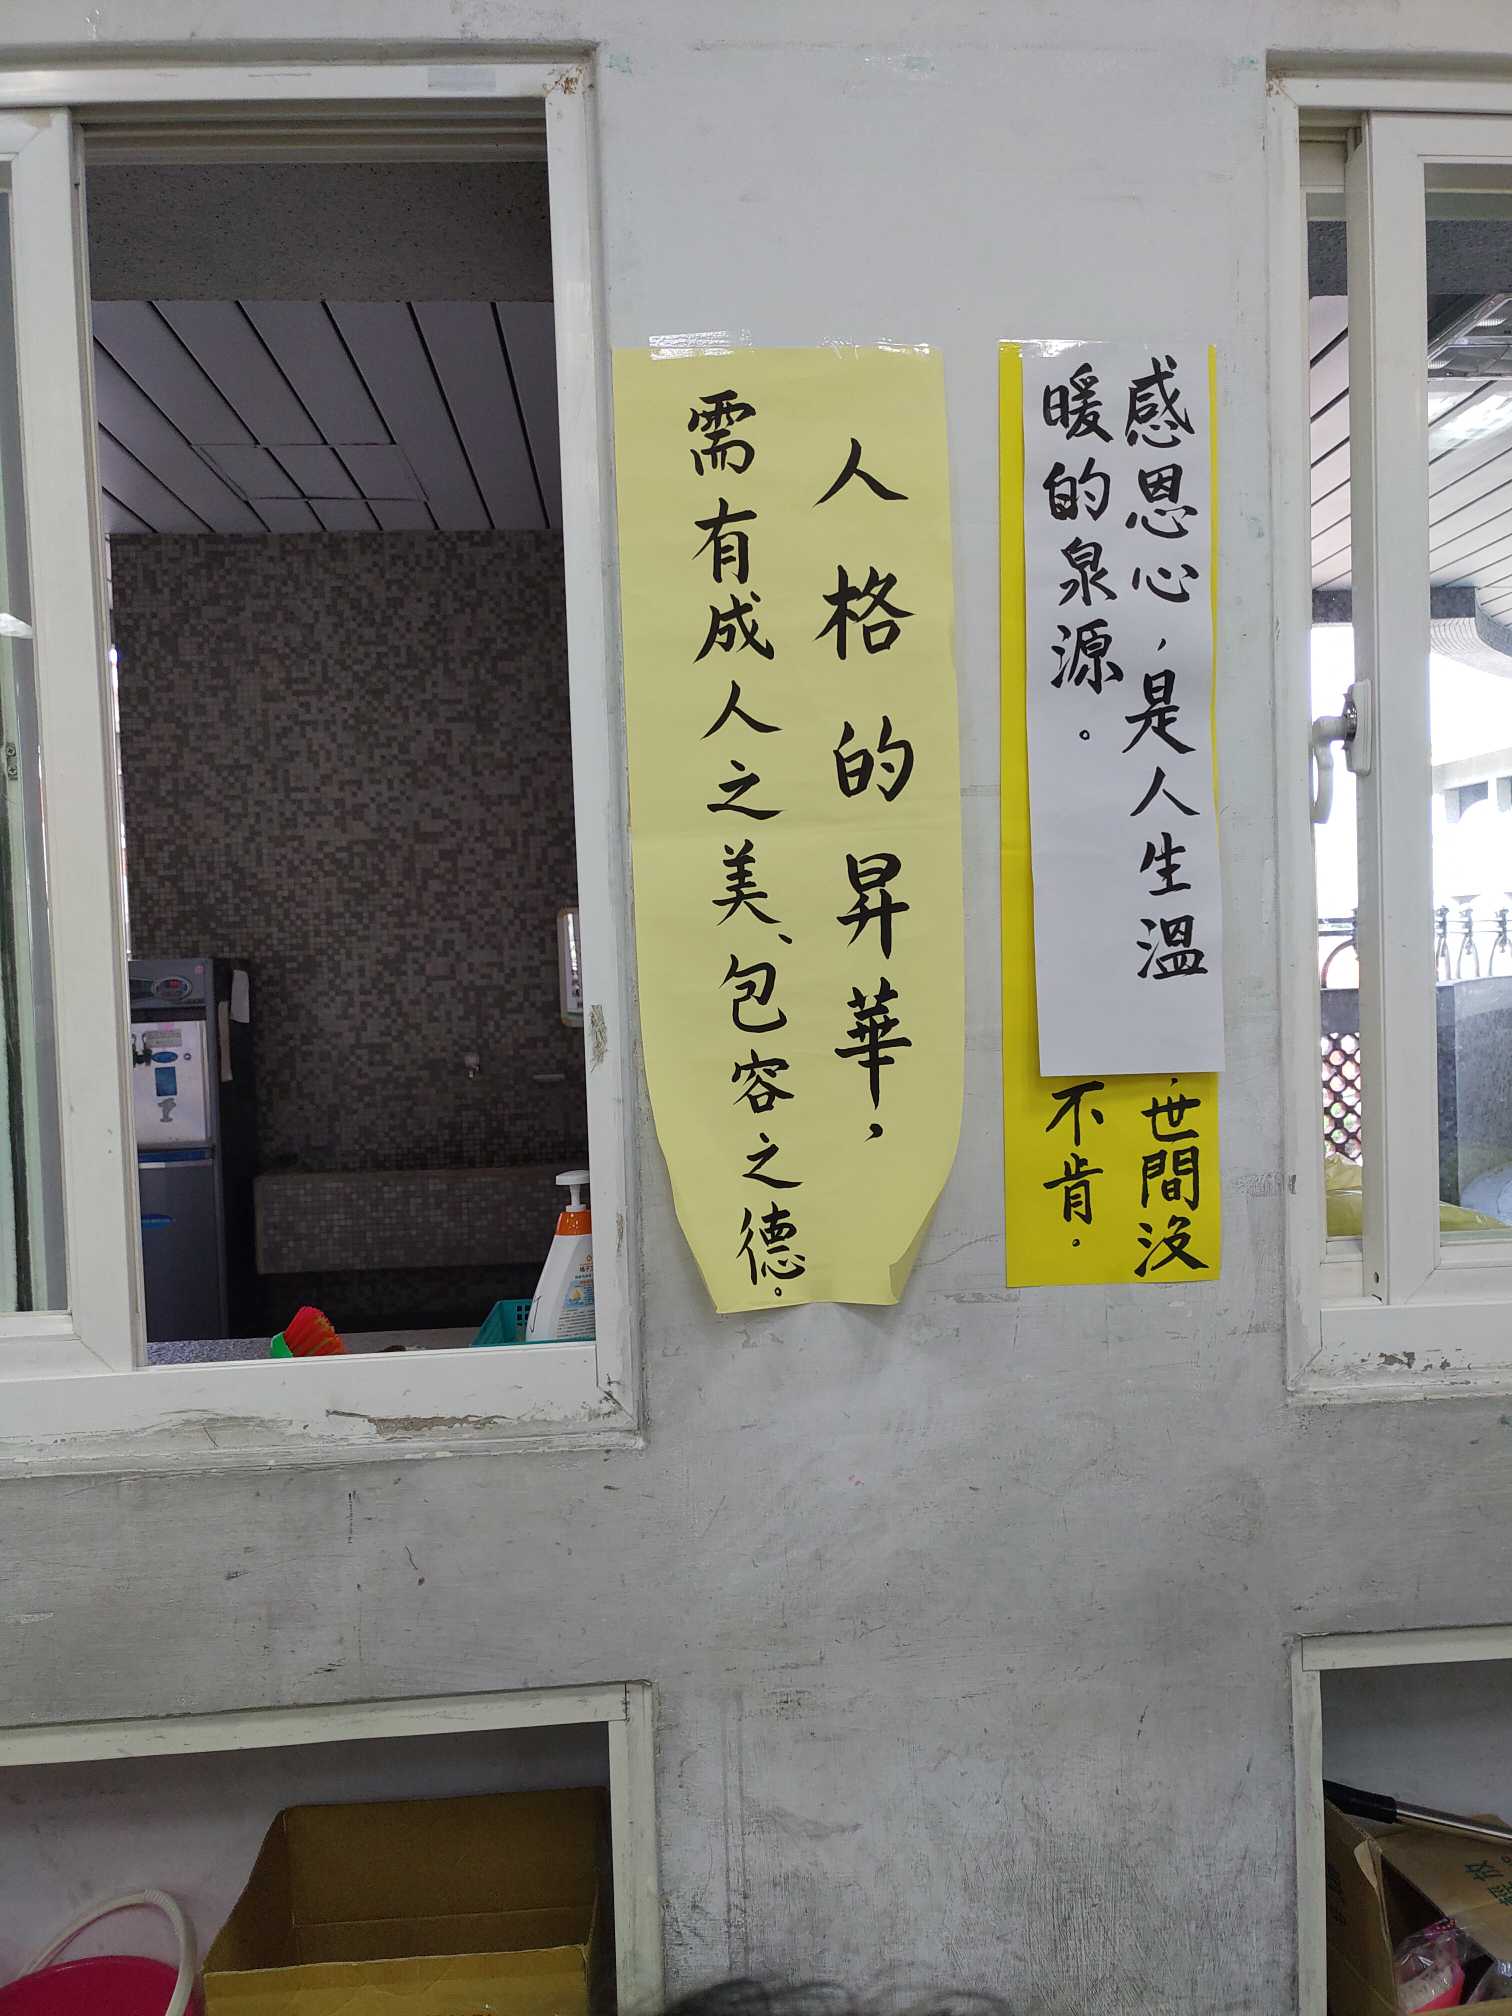 感恩心，是人生溫
暖的泉源。
，世間沒
不肯。
人格的昇華，
需有成人之美、包容之德。